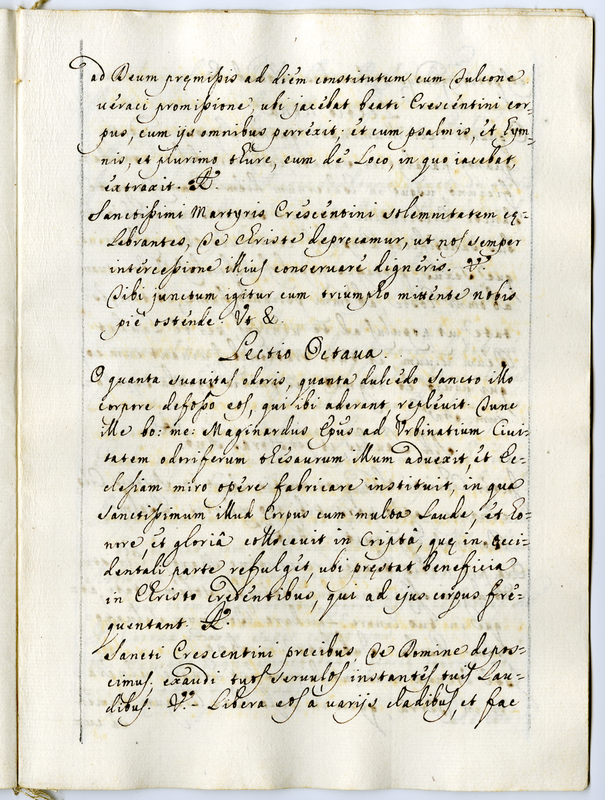 ad Deum pręmissis ad diem constitutum cum dulcone
veraci promissione, ubi jacebat beati Crescentini cor-
pus, cum ijs omnibus perrexit; et cum psalmis, et Hym-
nis, et plurimo thure, eum de Loco, in quo iacebat,
extraxit. R.
Sanctissimi Martyris Crescentini solemnitatem cę-
lebrantes, te Christe deprecamur, ut nos semper
intercessione illius conservare digneris. V.
Tibi junctum igitur cum triumpho mittente nobis
pie ostende. Vt &.
Lectio Octaua.
O quanta suavitas odoris, quanta dulcedo sancto illo
corpore defosso eos, qui ibi aderant, replevit. Tunc
ille bo: me: Maginardus Epus ad Vrbinatium Civi-
tatem odoriferum thesaurum illum aduexit, et Ec-
clesiam miro opere fabricare instituit, in qua
sanctissimum illud Corpus cum multa Laude, et Ho-
nore, et gloriâ collocavit in Criptâ, quę in occi-
dentali parte refulget, ubi pręstat beneficia
in Christo Credentibus, qui ad ejus corpus fre-
quentant. R.
Sancti Crescentini precibus te Domine depos-
cimus, exaudi tuos servulos instantes tuis Lau-
dibus. V. Libera eos à varijs cladibus, et fac